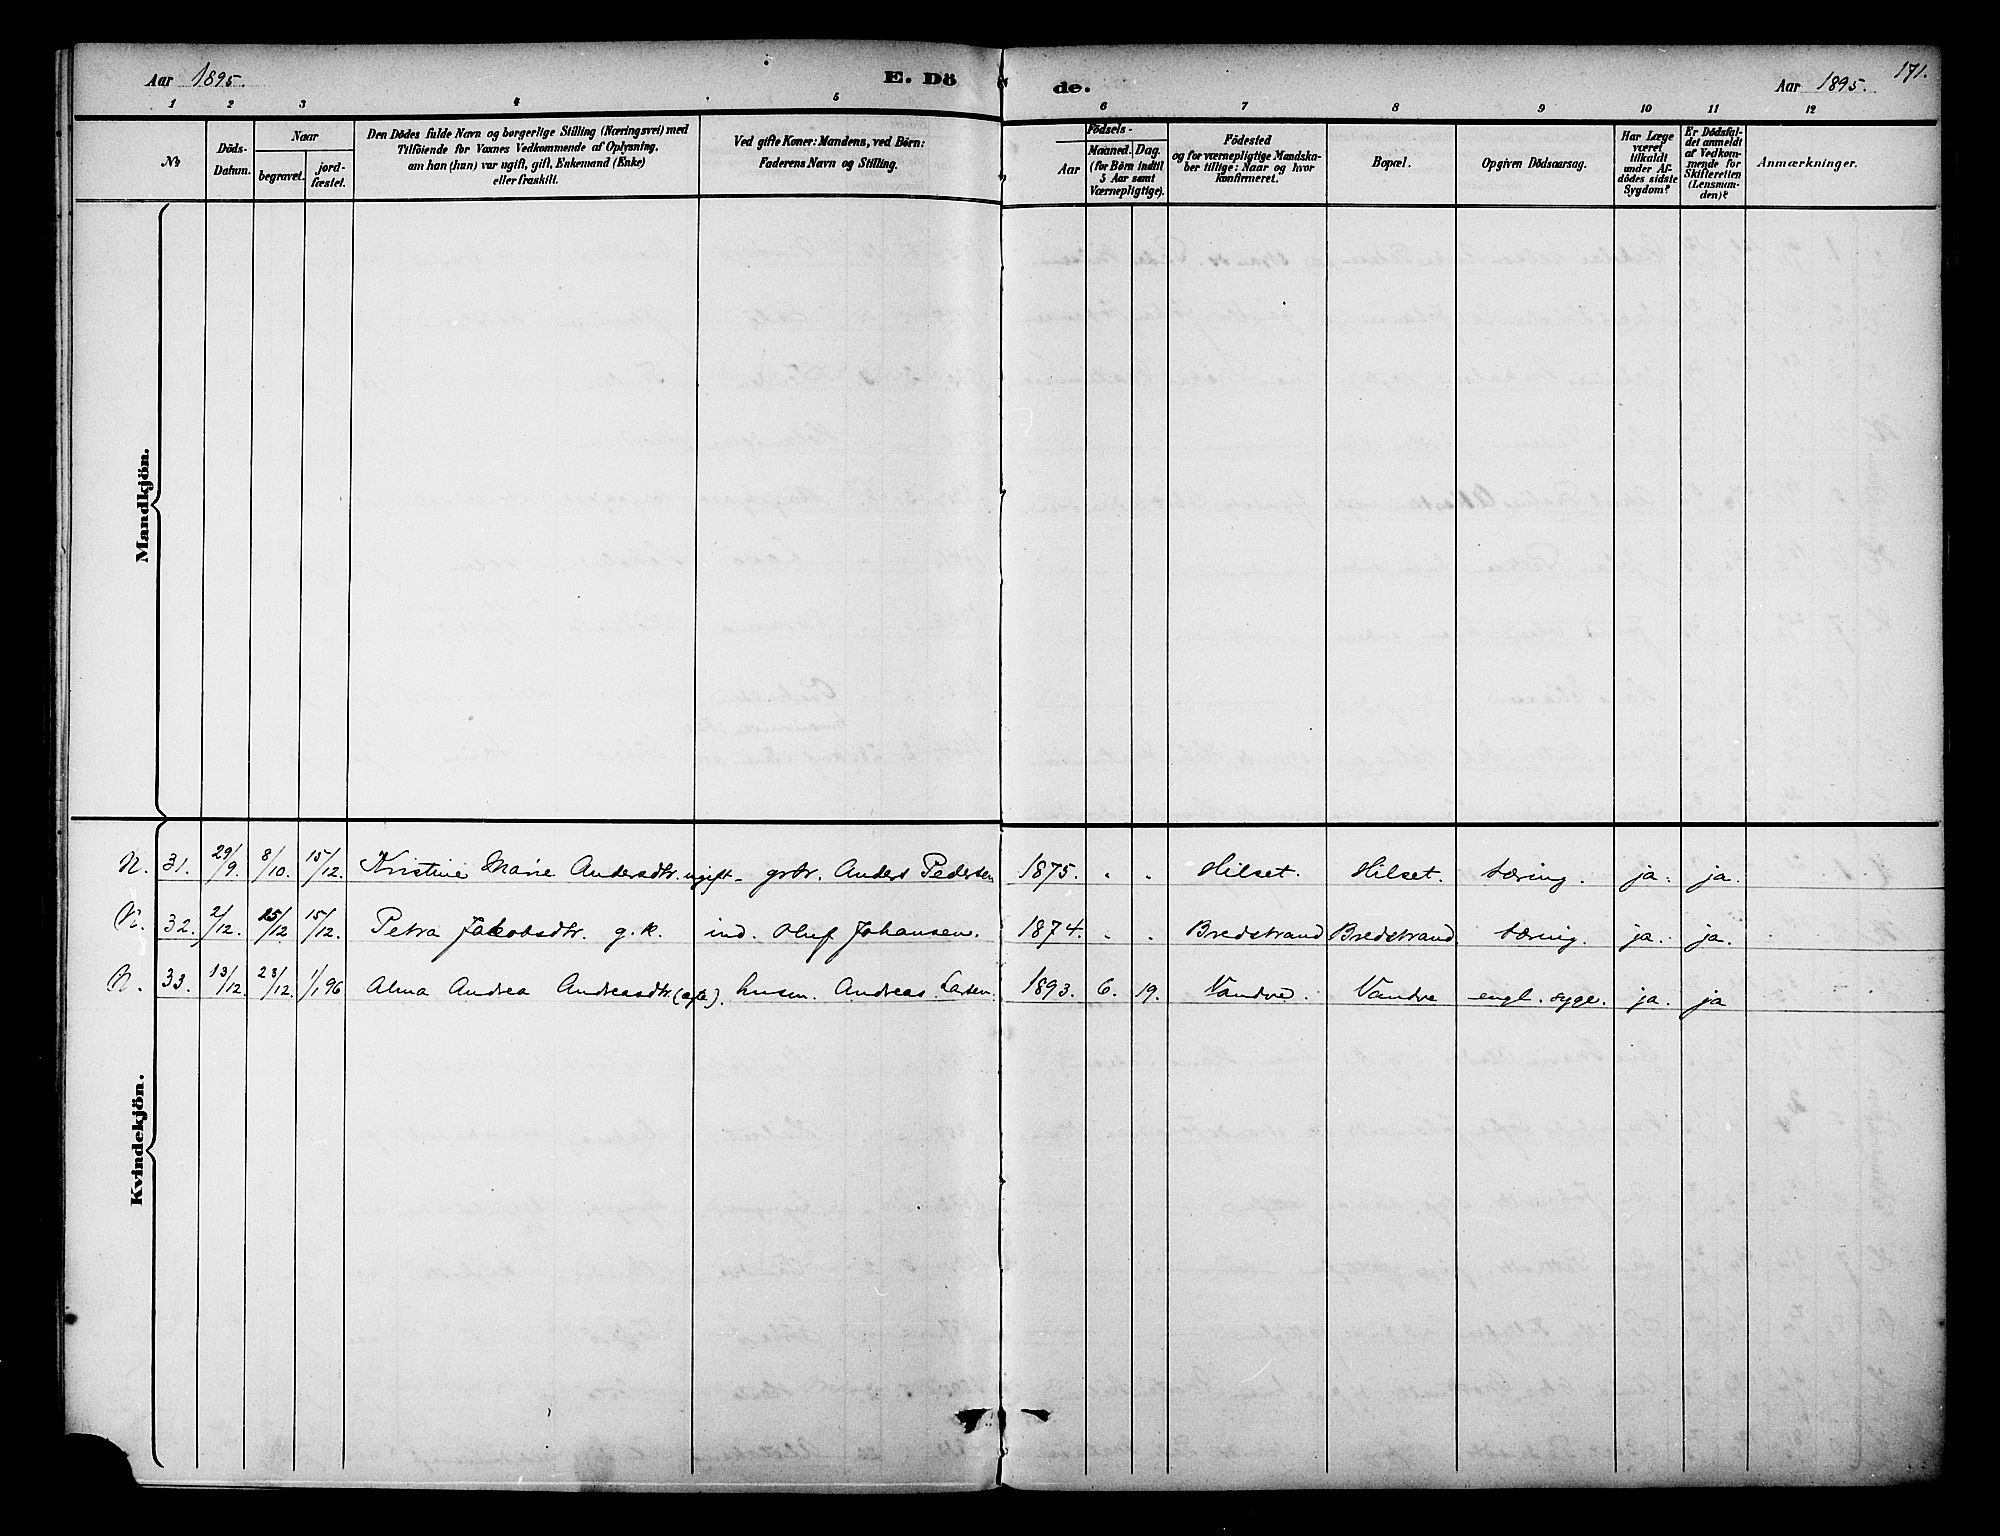 Aar 1895. E. Dö de. Aar 1895. 171.
1 2 3 4 5 6 7 8 9 10 11 12
№
Döds-
Datum.
Naar
begravet.
jord-
fæstet.
Den Dödes fulde Navn og borgerlige Stilling (Næringsvei) med
Tilföiende for Voxnes Vedkommende af Oplysning,
om han (hun) var ugift, gift, Enkemand (Enke)
eller fraskilt.
Ved gifte Koner: Mandens, ved Börn:
Faderens Navn og Stilling.
Födsels-
Aar
Maaned.
(for Börn indtil
5 Aar samt
Værnepligtige).
Dag.
Födested
og for værnepligtige Mandska-
ber tillige: Naar og hvor
konfirmeret.
Bopæl.
Opgiven Dödsaarsag.
Har Læge
været
tilkaldt
under Af-
dödes sidste
Sygdom?
Er Dödsfal-
det anmeldt
af Vedkom-
mende for
Skifteretten
(Lensman-
den)?
Anmærkninger.
Mandkjön.
N. 31. 29/9. 8/10. 15/12. Kristine Marie Andersdtr. ugift - grbr. Anders Pedersen 1875. " " Hilset. Hilset. tæring. ja. ja.
N. 32. 2/12. 15/12 15/12. Petra Jakobsdtr. g.k. ind. Oluf Johansen. 1874. " " Bredstrand Bredstrand. tæring. ja. ja.
N. 33. 13/12. 23/12. 1/1 96 Alma Andrea Andreasdtr. husm. Andreas Larsen. 1893. 6. 19. Vandve. Vandve engl. syge. ja. ja
Kvindekjön.